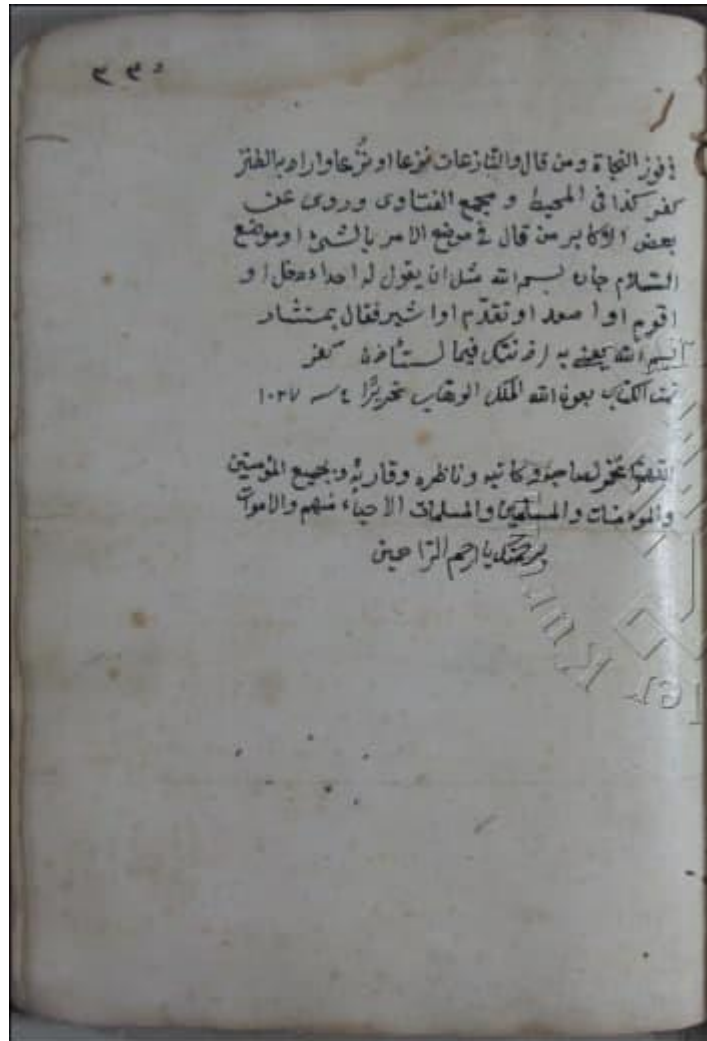 ٢٣٥
في فوز النجاة ومن قال والنّازعات نزعا او نُزعا واراد به الطنز
كفر كذا فى المحيط و مجمع الفتاوى وروى عن
بعض الاكابر من قال فى موضع الامر بالشئ او موضع
السّلام جاء بسم الله مثل ان يقول له احد ادخل او
اقوم او اصعد او تقدّم او اشير فقال بمستشار
بسم الله يعنى به اذنتك فيما استأذن كفر
تمت الكتاب بعون الله الملك الوهاب تحريرًا ٤ سنه ١٠٢٧
اللهمّ اغفر لصاحبه وكاتبه وناظره وقارئه وجميع المؤمنين
والمؤمنات والمسلمين والمسلمات الاحياء منهم والاموات
برحمتك يا ارحم الرّاحمين